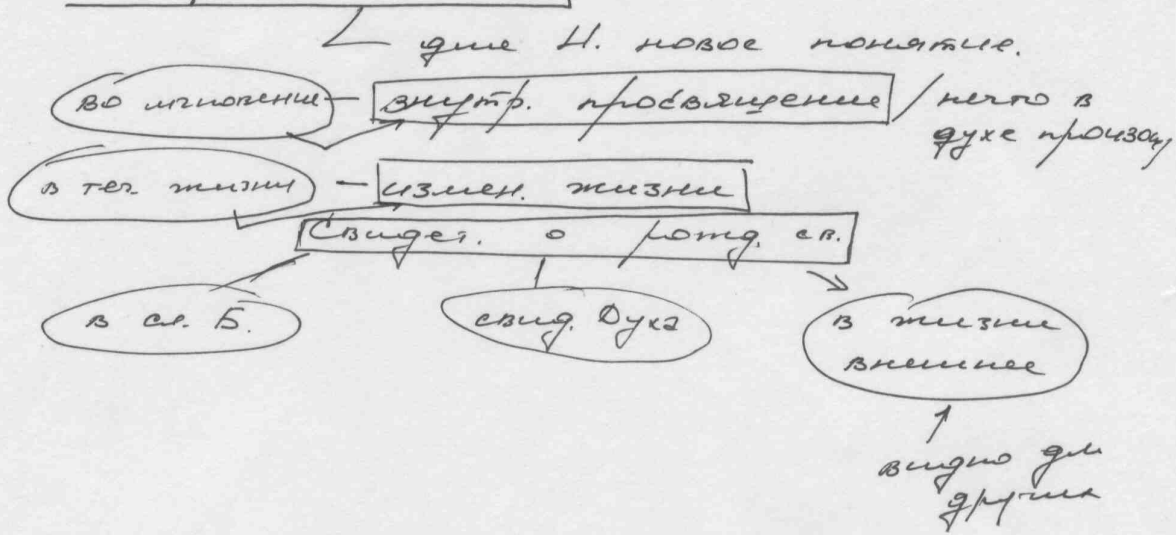 для Н. новое понятие.
во мгновение — внутр. просвящение / нечто в
духе произош
в теч. жизни — измен. жизни
Свидет. о рожд. св.
в сл. Б.
свид. Духа
в жизни
внешнее
видно для
других